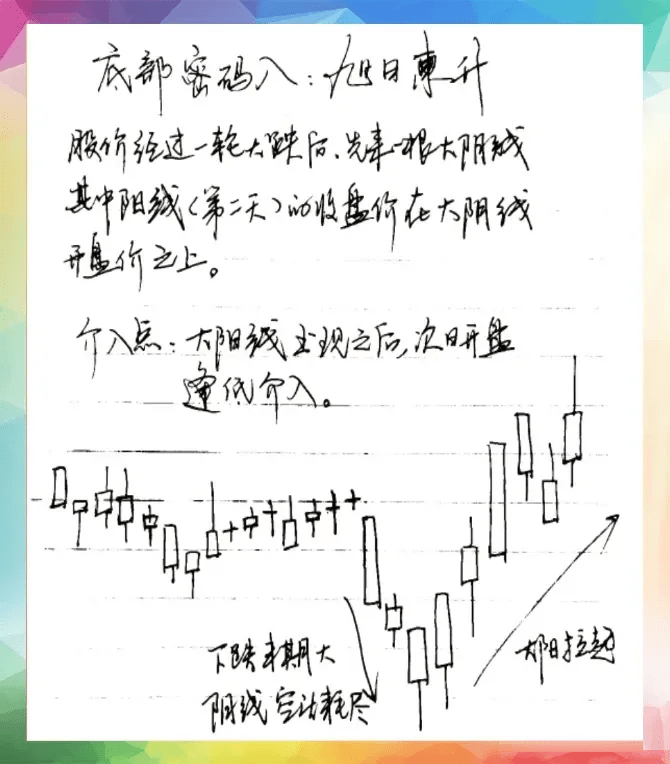 底部密码八：旭日東升
股价经过一轮大跌后、先来一根大阴线
其中阳线（第二天）的收盘价在大阴线
开盘价之上。
介入点：大阳线出现之后，次日开盘
逢低介入。
下跌末期大
阴线空沽耗尽
大阳拉起